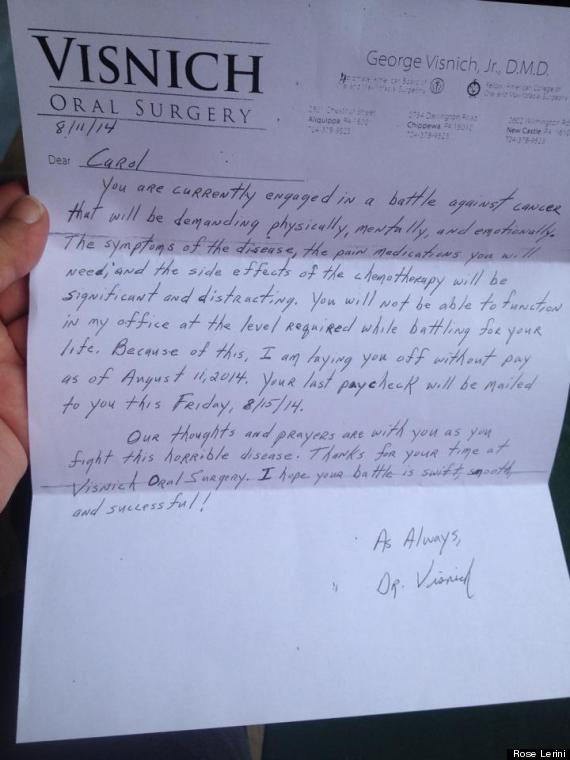 VISNICH
ORAL SURGERY
George Visnich, Jr., D.M.D.
Diplomate, American Board of
Oral and Maxillofacial Surgeons
Fellow, American College of
Oral and Maxillofacial Surgeons
Chestnut Street
Aliquippa PA
724-378-9523
Darlington Road
Chippewa PA
724-378-9523
2602 Wilmington Road
New Castle PA
724-378-9523
8/11/14
Dear Carol
You are currently engaged in a battle against cancer
that will be demanding physically, mentally, and emotionally.
The symptoms of the disease, the pain medications you will
need, and the side effects of the chemotherapy will be
significant and distracting. You will not be able to function
in my office at the level required while battling for your
life. Because of this, I am laying you off without pay
as of August 11, 2014. Your last paycheck will be mailed
to you this Friday, 8/15/14.
Our thoughts and prayers are with you as you
fight this horrible disease. Thanks for your time at
Visnich Oral Surgery. I hope your battle is swift, smooth,
and successful!
As Always,
Dr. Visnich
Rose Lerini